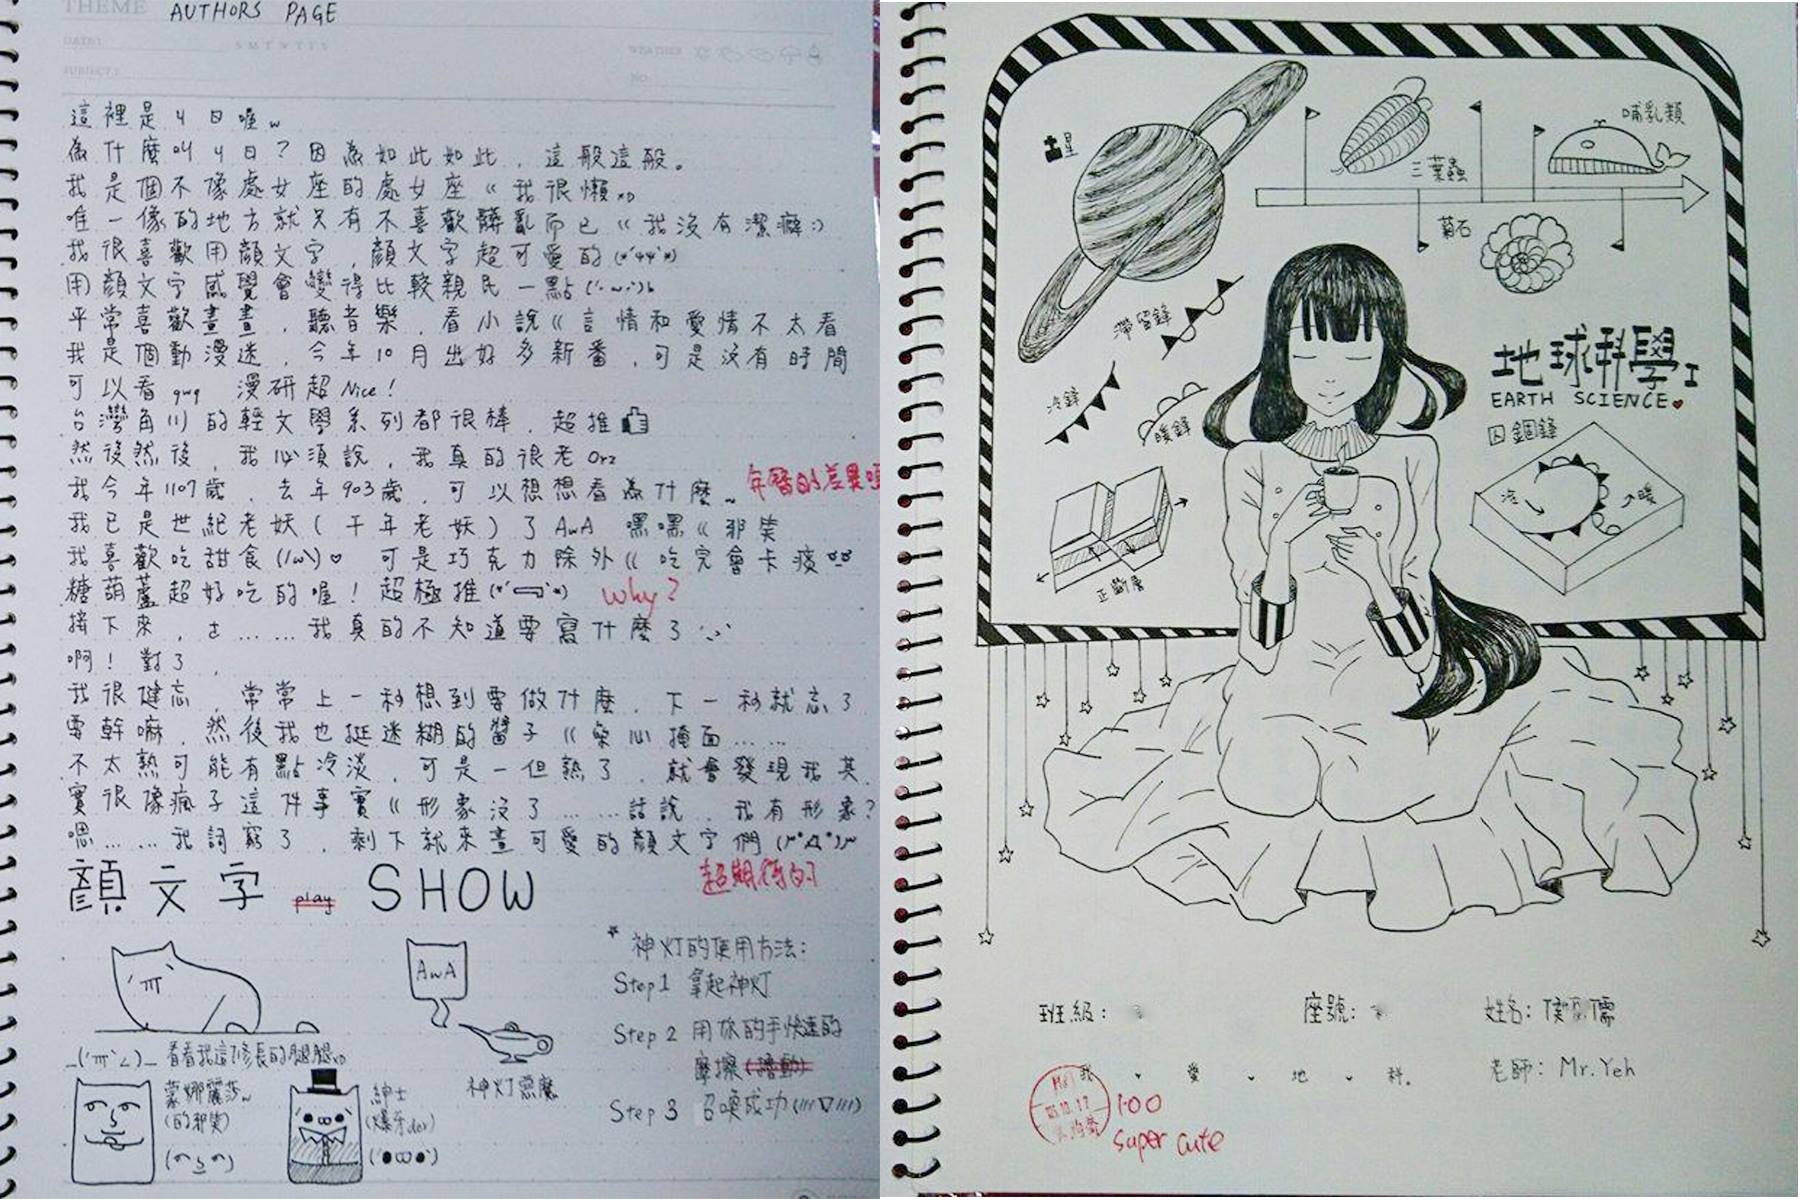 THEME AUTHORS PAGE
DATE: S M T W T F S WEATHER
SUBJECT: NO.
這裡是4日喔w
為什麼叫4日？因為如此如此，這般這般。
我是個不像處女座的處女座《我很懶xD
唯一像的地方就只有不喜歡髒亂而已《我沒有潔癖:)
我很喜歡用顏文字，顏文字超可愛的
用顏文字感覺會變得比較親民一點(´・ω・`)b
平常喜歡畫畫，聽音樂，看小說《言情和愛情不太看
我是個動漫迷，今年10月出好多新番，可是沒有時間
可以看qwq 漫研超Nice！
台灣角川的輕文學系列都很棒，超推
然後然後，我必須說，我真的很老Orz
我今年1107歲，去年903歲，可以想想看為什麼~
年曆的差異嗎
我已是世紀老妖(千年老妖)了AwA 嘿嘿《邪笑
我喜歡吃甜食(/ω\)♡ 可是巧克力除外《吃完會卡痰
糖葫蘆超好吃的喔！超極推
why?
接下來，ㄜ……我真的不知道要寫什麼了
啊！對了，
我很健忘，常常上一秒想到要做什麼，下一秒就忘了
要幹嘛，然後我也挺迷糊的醬子《染心掩面……
不太熟可能有點冷淡，可是一但熟了，就會發現我其
實很像瘋子這件事實《形象沒了……話說，我有形象？
嗯……我詞窮了，剩下就來畫可愛的顏文字們
超期待的
顏文字 play SHOW
AwA
_(:3」∠)_ 看看我這修長的腿腿xD
神灯惡魔
蒙娜麗莎~
(的邪笑)
紳士
(爆牙der)
(´●ω●`)
*神灯的使用方法：
Step1 拿起神灯
Step 2 用你的手快速的
摩擦
Step 3 召喚成功(///∇///)
土星
三葉蟲
哺乳類
菊石
滯留鋒
冷鋒
暖鋒
正斷層
地球科學I
EARTH SCIENCE♥
囚錮鋒
冷
暖
班級：
座號：
姓名：
我、愛、地、科。
老師：Mr.Yeh
100
super cute